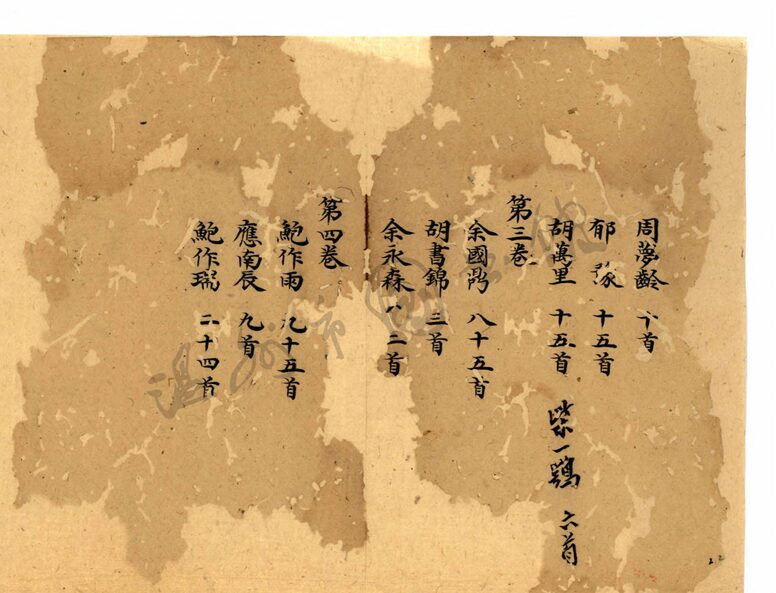 周夢齡 十首
郁豫 十五首
胡萬里 十五首 柴一鶚 六首
第三卷
余國 八十五首
胡書錦 三首
余永森 八二首
第四卷
鮑作雨 九十五首
應南辰 九首
鮑作瑞 二十四首